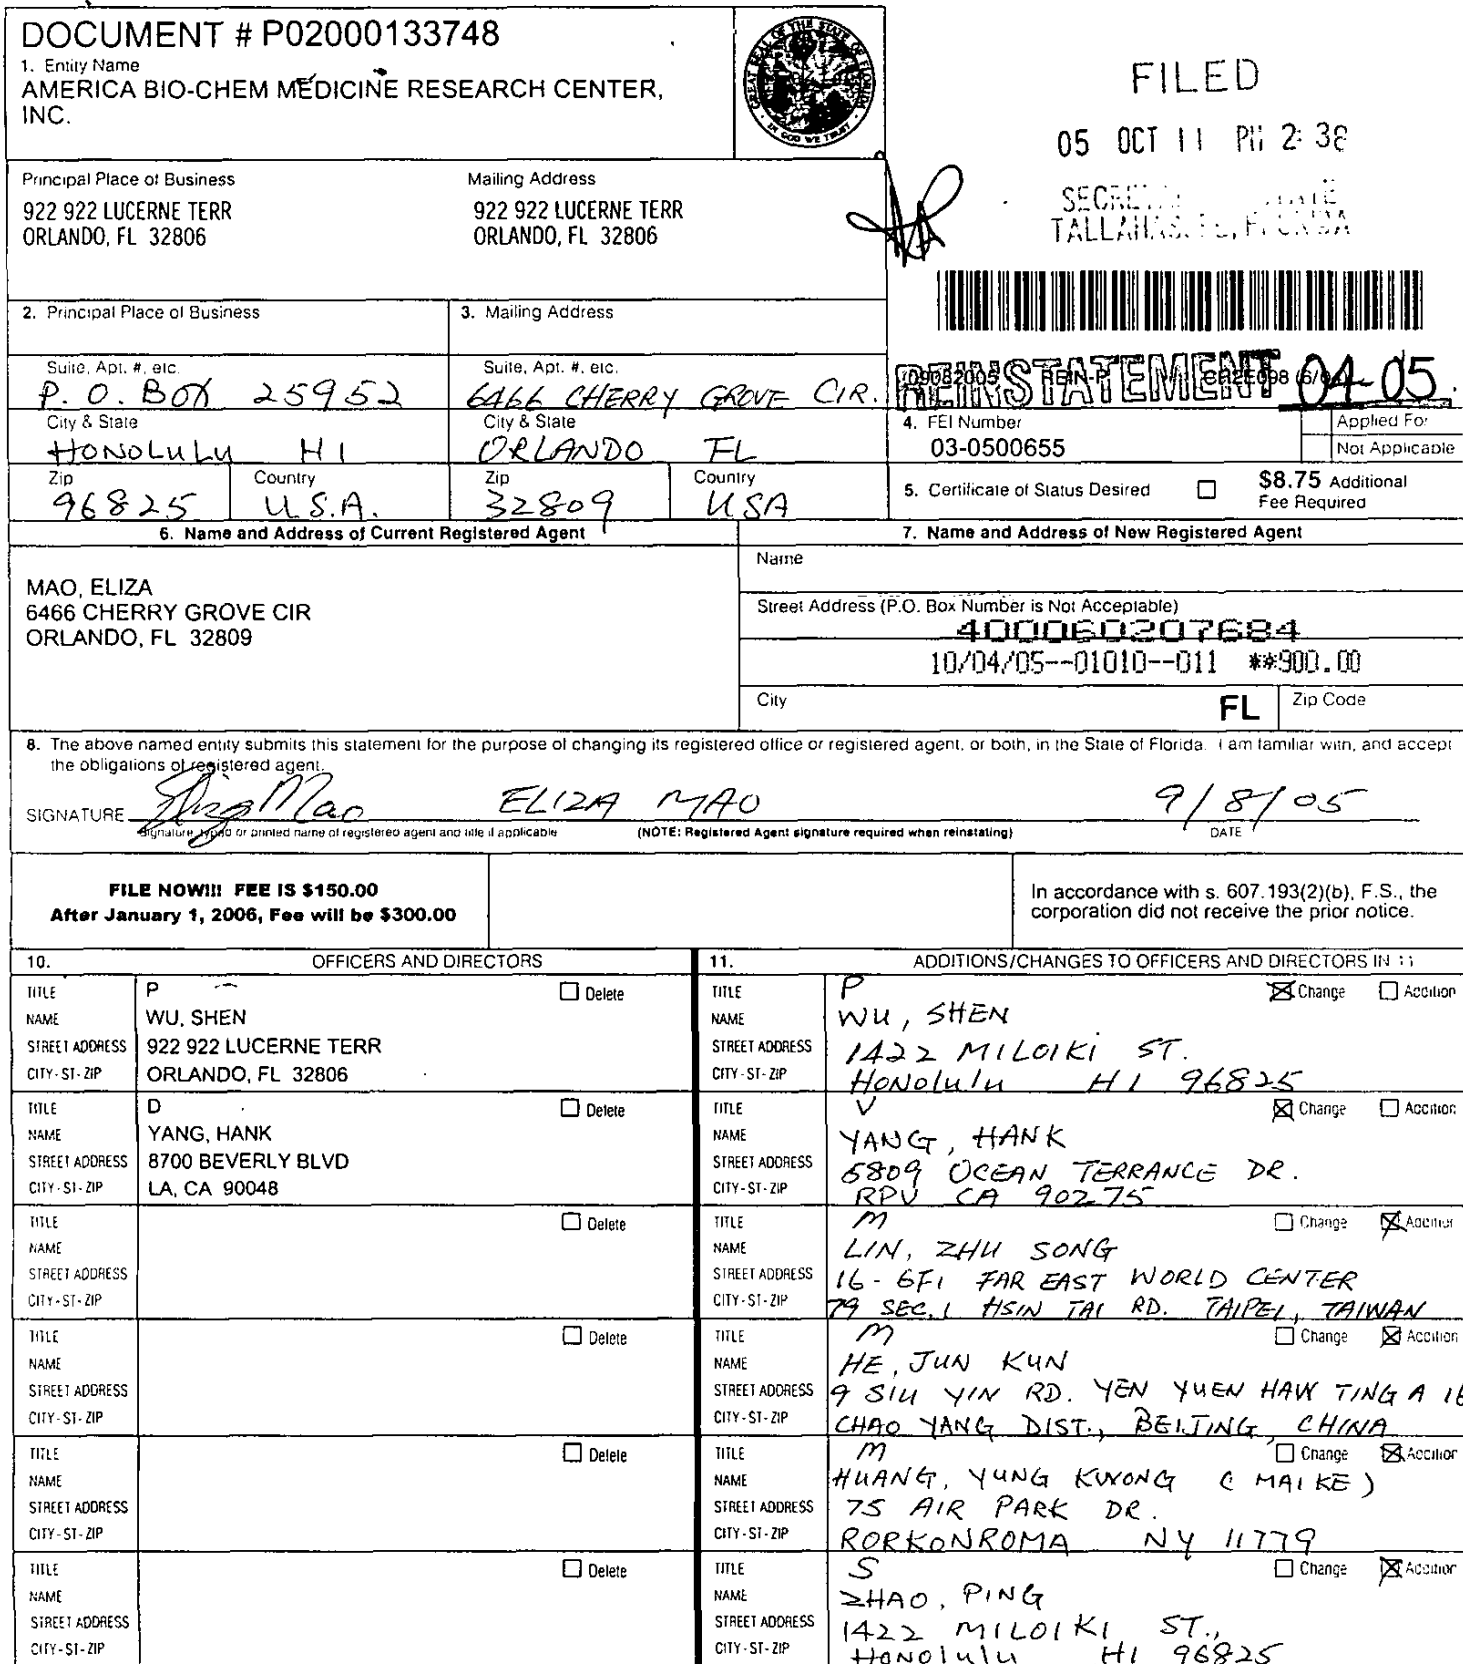 DOCUMENT # P02000133748
1. Entity Name
AMERICA BIO-CHEM MEDICINE RESEARCH CENTER,
INC.
GREAT SEAL OF THE STATE OF FLORIDA
IN GOD WE TRUST
FILED
05 OCT 11 PM 2:38
TALLAHASSEE, FLORIDA
Principal Place of Business
922 922 LUCERNE TERR
ORLANDO, FL 32806
Mailing Address
922 922 LUCERNE TERR
ORLANDO, FL 32806
2. Principal Place of Business
3. Mailing Address
Suite, Apt. #, etc.
P. O. BOX 25952
Suite, Apt. #, etc.
6466 CHERRY GROVE CIR.
REINSTATEMENT 04-05.
09082005 REIN-P CR2E098
City & State
HONOLULU HI
City & State
ORLANDO FL
4. FEI Number
03-0500655
Applied For
Not Applicable
Zip
96825
Country
U.S.A.
Zip
32809
Country
USA
5. Certificate of Status Desired ☐
$8.75 Additional
Fee Required
6. Name and Address of Current Registered Agent
MAO, ELIZA
6466 CHERRY GROVE CIR
ORLANDO, FL 32809
7. Name and Address of New Registered Agent
Name
Street Address (P.O. Box Number is Not Acceptable)
400060207684
10/04/05--01010--011 **900.00
City
FL
Zip Code
8. The above named entity submits this statement for the purpose of changing its registered office or registered agent, or both, in the State of Florida. I am familiar with, and accept
the obligations of registered agent.
SIGNATURE Eliza Mao ELIZA MAO 9/8/05
Signature, typed or printed name of registered agent and title if applicable (NOTE: Registered Agent signature required when reinstating) DATE
FILE NOW!!! FEE IS $150.00
After January 1, 2006, Fee will be $300.00
In accordance with s. 607.193(2)(b), F.S., the
corporation did not receive the prior notice.
10. OFFICERS AND DIRECTORS
TITLE P ☐ Delete
NAME WU, SHEN
STREET ADDRESS 922 922 LUCERNE TERR
CITY-ST-ZIP ORLANDO, FL 32806
TITLE D ☐ Delete
NAME YANG, HANK
STREET ADDRESS 8700 BEVERLY BLVD
CITY-ST-ZIP LA, CA 90048
TITLE ☐ Delete
NAME
STREET ADDRESS
CITY-ST-ZIP
TITLE ☐ Delete
NAME
STREET ADDRESS
CITY-ST-ZIP
TITLE ☐ Delete
NAME
STREET ADDRESS
CITY-ST-ZIP
TITLE ☐ Delete
NAME
STREET ADDRESS
CITY-ST-ZIP
11. ADDITIONS/CHANGES TO OFFICERS AND DIRECTORS IN 11
TITLE P ☒ Change ☐ Addition
NAME WU, SHEN
STREET ADDRESS 1422 MILOIKI ST.
CITY-ST-ZIP HONOLULU HI 96825
TITLE V ☒ Change ☐ Addition
NAME YANG, HANK
STREET ADDRESS 6809 OCEAN TERRANCE DR.
CITY-ST-ZIP RPV CA 90275
TITLE M ☐ Change ☒ Addition
NAME LIN, ZHU SONG
STREET ADDRESS 16-6F1 FAR EAST WORLD CENTER
CITY-ST-ZIP 79 SEC.1 HSIN TAI RD. TAIPEI, TAIWAN
TITLE M ☐ Change ☒ Addition
NAME HE, JUN KUN
STREET ADDRESS 9 SIU YIN RD. YEN YUEN HAW TING A 16
CITY-ST-ZIP CHAO YANG DIST., BEIJING, CHINA
TITLE M ☐ Change ☒ Addition
NAME HUANG, YUNG KWONG (MAIKE)
STREET ADDRESS 75 AIR PARK DR.
CITY-ST-ZIP RORKONROMA NY 11779
TITLE S ☐ Change ☒ Addition
NAME ZHAO, PING
STREET ADDRESS 1422 MILOIKI ST.,
CITY-ST-ZIP HONOLULU HI 96825